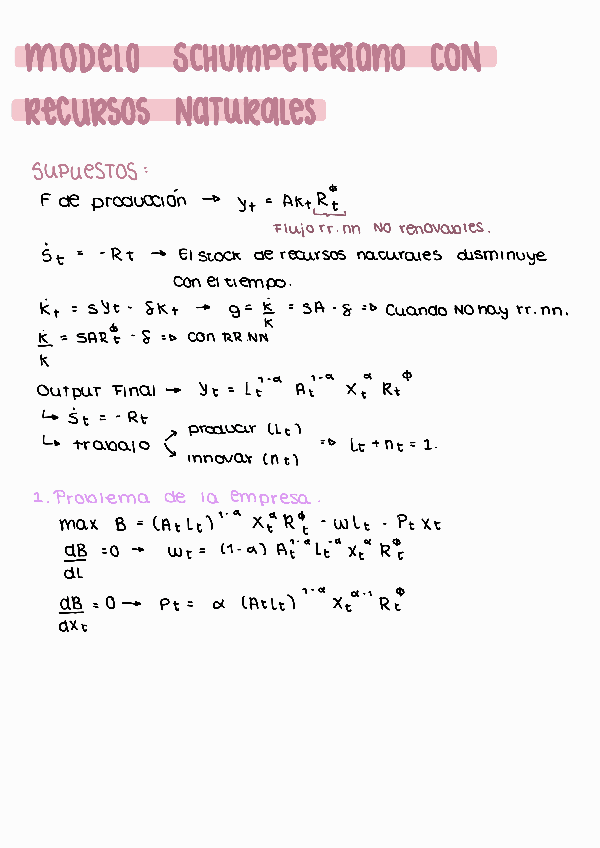 MODELO SCHUMPETERIANO CON
RECURSOS NATURALES
SUPUESTOS:
F de producción → yt = AKt Rt^ϕ
Flujo rr.nn NO renovables.
Ṡt = -Rt → El stock de recursos naturales disminuye
con el tiempo.
K̇t = sYt - δKt → g = K̇/K = SA - δ => Cuando NO hay rr.nn.
K̇/K = SARt^ϕ - δ => con RR.NN
Output Final → Yt = Lt^1-α At^1-α Xt^α Rt^ϕ
↳ Ṡt = -Rt
↳ trabajo
producir (Lt)
innovar (nt)
=> Lt + nt = 1.
1. Problema de la empresa.
max B = (At Lt)^1-α Xt^α Rt^ϕ - wLt - Pt Xt
dB/dL = 0 → wt = (1-α) At^1-α Lt^-α Xt^α Rt^ϕ
dB/dXt = 0 → Pt = α (AtLt)^1-α Xt^α-1 Rt^ϕ